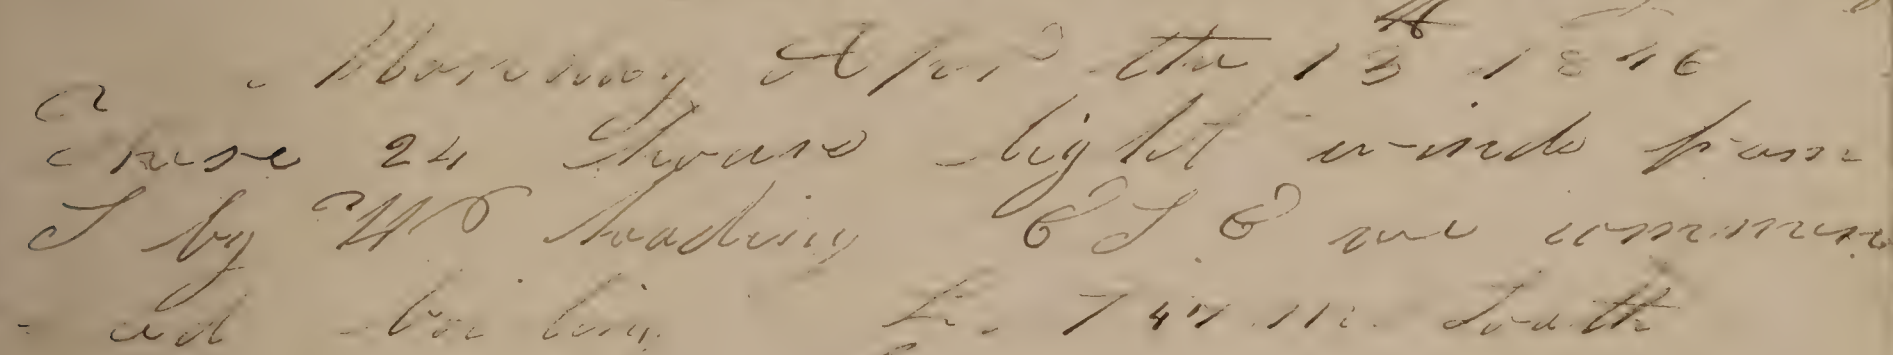 Monday Apr the 13 1846
These 24 hours light winds from
S by W heading ESE we commen
- ced boiling La 7 47 m South